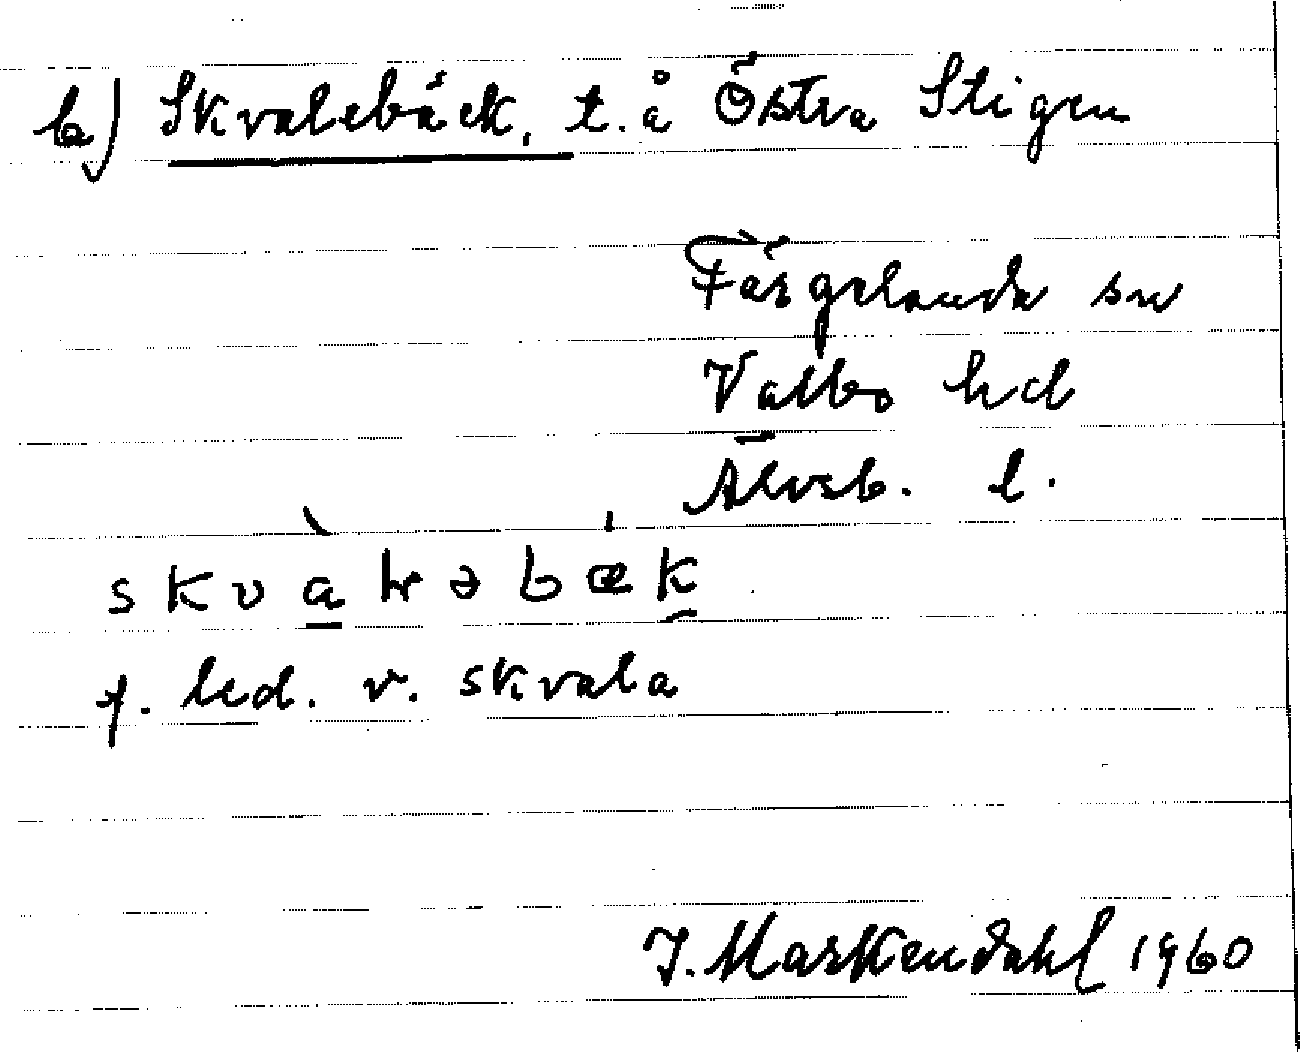 b) Skvalebäck, t. å Östra Stigen
Färgelanda sn
Valbo hd
Älvsb. l.
skvàləbæk
f. led. v. skvala
J. Markendahl 1960